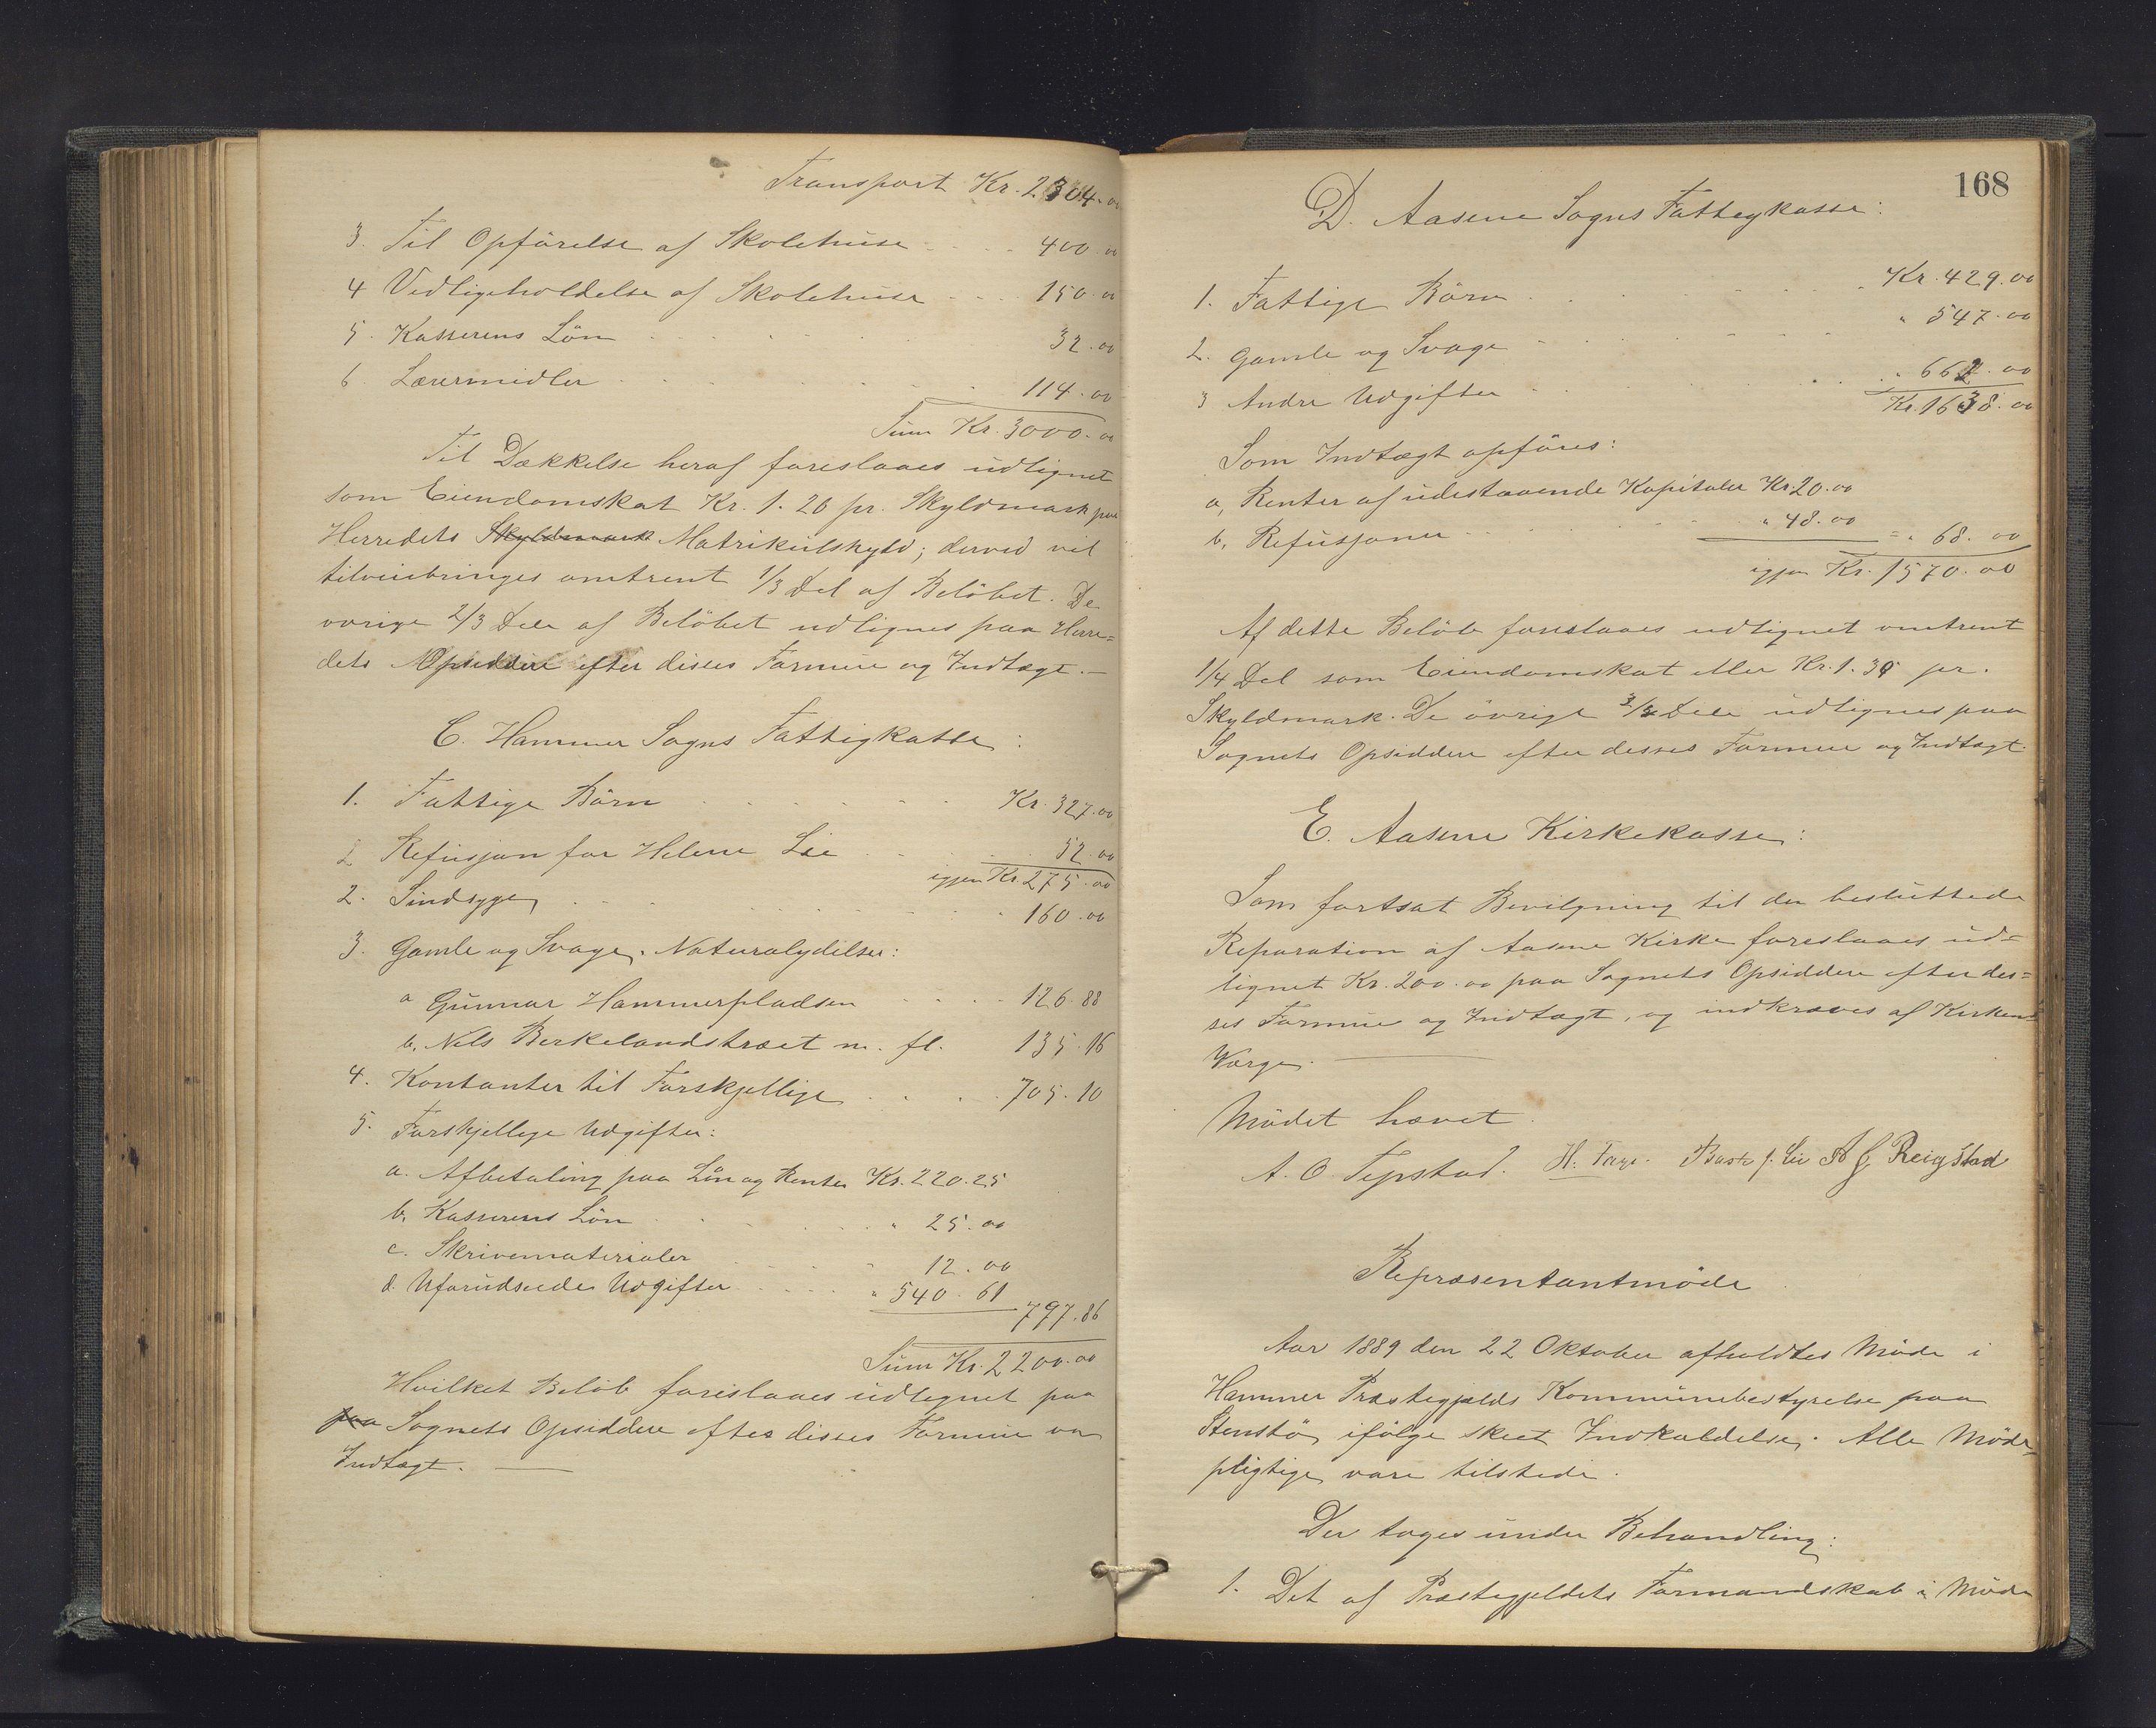 Transport Kr. 2304.00
3. Til Opförelse af Skolehuse . . . 400.00
4 Vedligeholdelse af Skolehuse . . . 150.00
5. Kasserens Lön . . . 32.00
6. Lærermidler . . . 114.00
Sum Kr. 3000.00
Til Dækkelse heraf foreslaaes udlignet
som Eiendomskat Kr. 1.26 pr. Skyldmark paa
Herredets Skyldmark Matrikulskyld; derved vil
tilveiebringes omtrent 1/3 Del af Belöbet. De
övrige 2/3 Dele af Belöbet udlignes paa Herre=
dets Opsiddere efter disses Formue og Indtægt. —
C. Hammer Sogns Fattigkasse:
1. Fattige Börn . . . Kr. 327.00
2 Refusjon for Helene Lie . . . 52.00
igjen Kr. 275.00
2. Sindsyge . . . 160.00
3. Gamle og Svage. Naturalydelser:
a Gunnar Hammerpladsen . . . 126.88
b. Nels Berkelandstræet m. fl. 135.16
4. Kontanter til Forskjellige . . . 705.10
5. Forskjellige Udgifter:
a. Afbetaling paa Lån og Renter Kr. 220.25
b. Kasserens Lön . . . " 25.00
c. Skrivematerialer . . . " 12.00
d. Uforudseede Udgifter . . . " 540.61
797.86
Sum Kr. 2200.00
Hvilket Belöb foreslaaes udlignet paa
paa Sognets Opsiddere efter disses Formue og
Indtægt. —
168
D. Aasene Sogns Fattigkasse:
1. Fattige Börn . . . Kr. 429.00
2. Gamle og Svage . . . " 547.00
3 Andre Udgifter . . . " 662.00
Kr. 1638.00
Som Indtægt opföres:
a, Renter af udestaaende Kapitaler Kr. 20.00
b, Refusjoner . . . " 48.00 = " 68.00
igjen Kr. 1570.00
Af dette Belöb foreslaaes udlignet omtrent
1/4 Del som Eiendomskat eller Kr. 1.35 pr.
Skyldmark. De övrige 3/4 Dele udlignes paa
Sognets Opsiddere efter desses Formue og Indtægt.
E. Aasene Kirkekasse:
Som fortsat Bevilgning til den besluttede
Reparation af Aasene Kirke foreslaaes ud=
lignet Kr. 200.00 paa Sognets Opsiddere efter des=
ses Formue og Indtægt, og indkræves af Kirkens
Værge. —
Mödet hævet.
A. O. Tepstad. H. Fage. J. Lie A J Reigstad
Repræsentantmöde
Aar 1889 den 22 Oktober afholdtes Möde i
Hammer Præstegjelds Kommunebestyrelse paa
Stenstö, ifölge skeet Indkaldelse. Alle Möde=
pligtige vare tilstede.
Der toges under Behandling:
1. Det af Præstegjeldets Formandskab i Möde